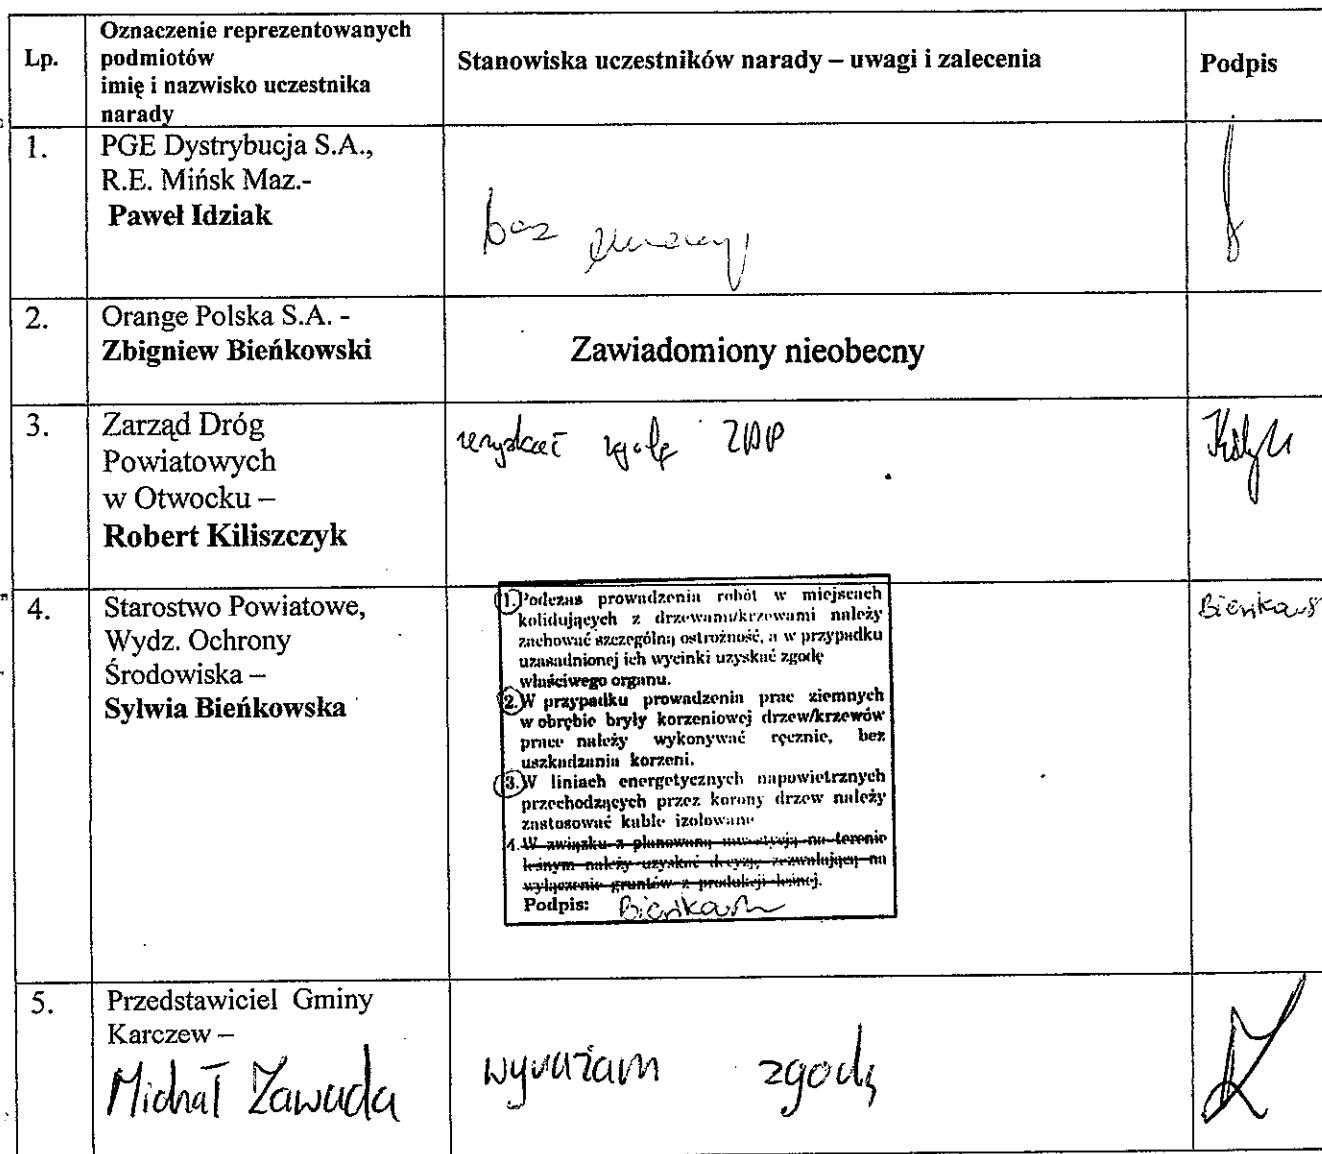 Lp.
Oznaczenie reprezentowanych
podmiotów
imię i nazwisko uczestnika
narady
Stanowiska uczestników narady – uwagi i zalecenia
Podpis
1.
PGE Dystrybucja S.A.,
R.E. Mińsk Maz.-
Paweł Idziak
bez
2.
Orange Polska S.A. -
Zbigniew Bieńkowski
Zawiadomiony nieobecny
3.
Zarząd Dróg
Powiatowych
w Otwocku –
Robert Kiliszczyk
uzyskać zgodę ZDP
4.
Starostwo Powiatowe,
Wydz. Ochrony
Środowiska –
Sylwia Bieńkowska
1. Podczas prowadzenia robót w miejscach
kolidujących z drzewami/krzewami należy
zachować szczególną ostrożność, a w przypadku
uzasadnionej ich wycinki uzyskać zgodę
właściwego organu.
2. W przypadku prowadzenia prac ziemnych
w obrębie bryły korzeniowej drzew/krzewów
prace należy wykonywać ręcznie, bez
uszkadzania korzeni.
3. W liniach energetycznych napowietrznych
przechodzących przez korony drzew należy
zastosować kable izolowane
4. W związku z planowaną inwestycją na terenie
leśnym należy uzyskać decyzję zezwalającą na
wyłączenie gruntów z produkcji leśnej.
Podpis:
5.
Przedstawiciel Gminy
Karczew –
Michał Zawada
wyrażam zgodę